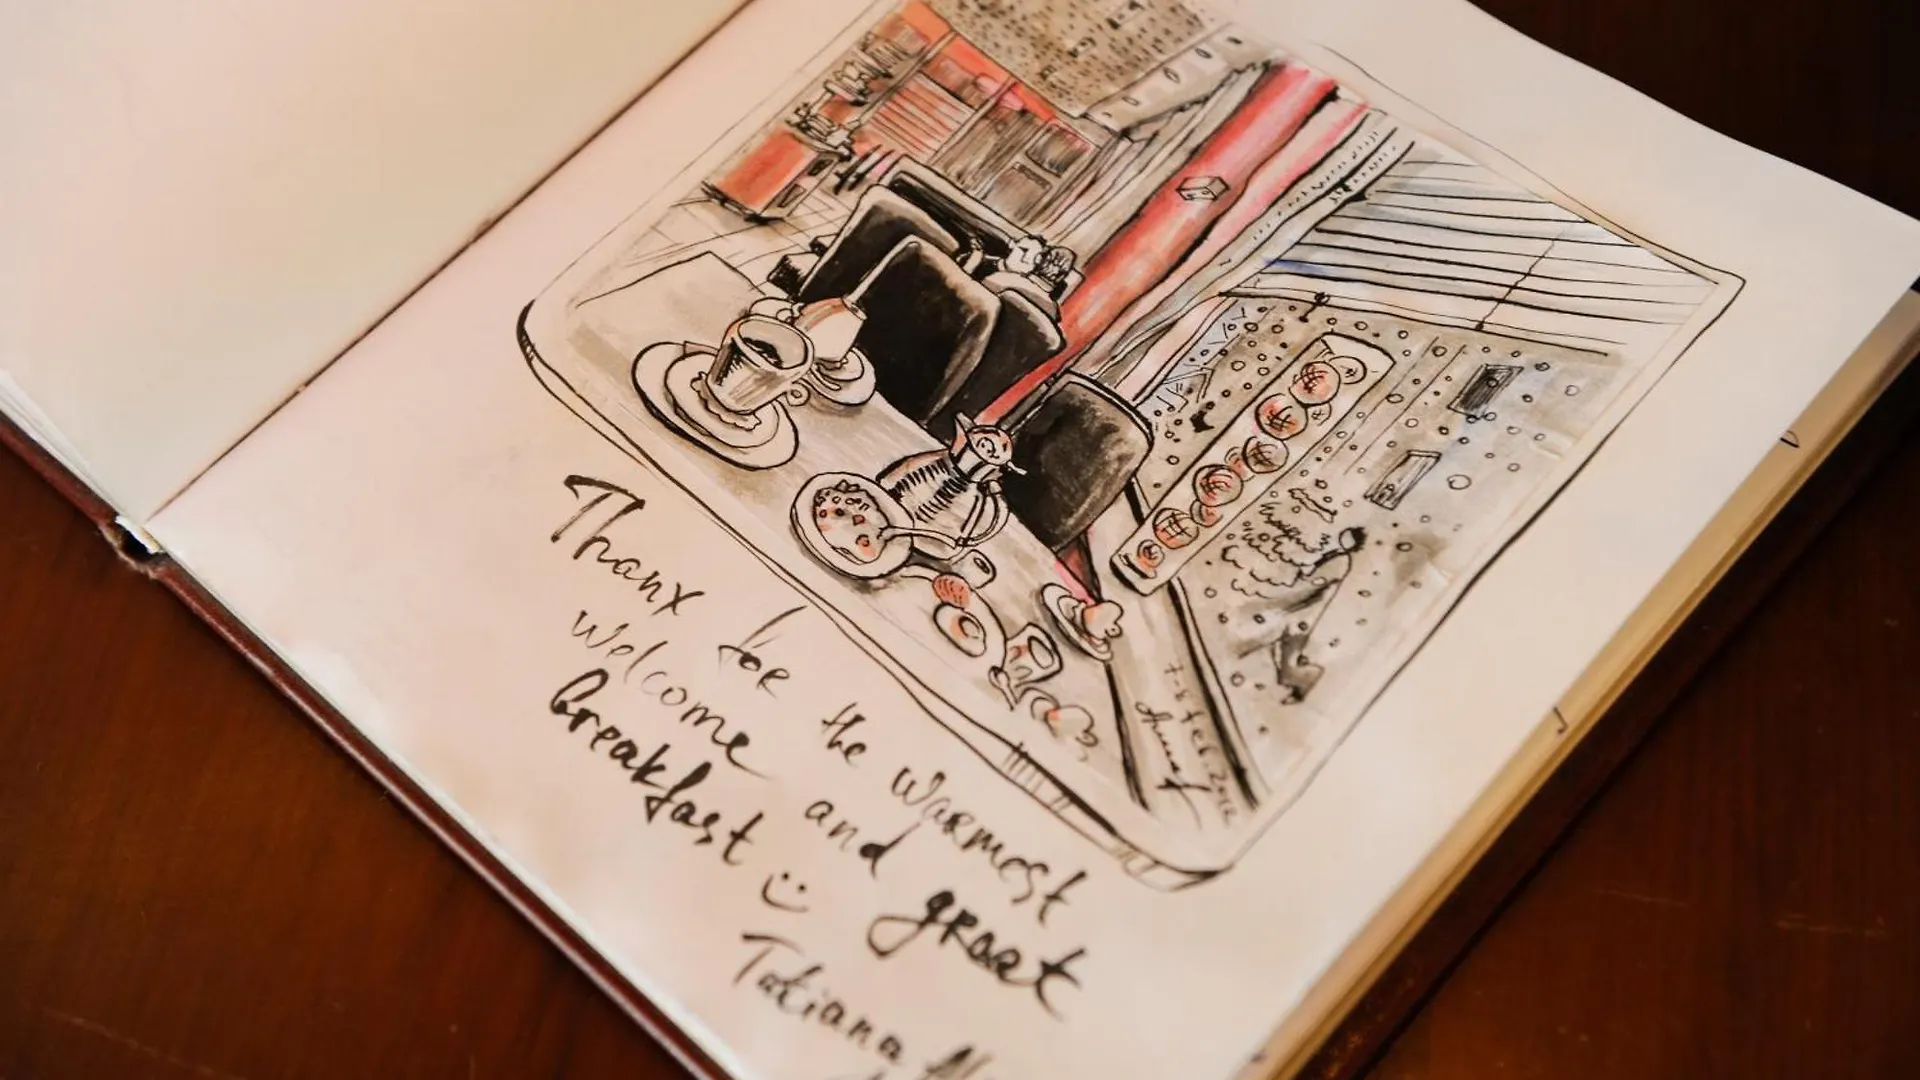 Thanx for the warmest
welcome and great
breakfast :)
Tatiana
7-8 Feb. 2012